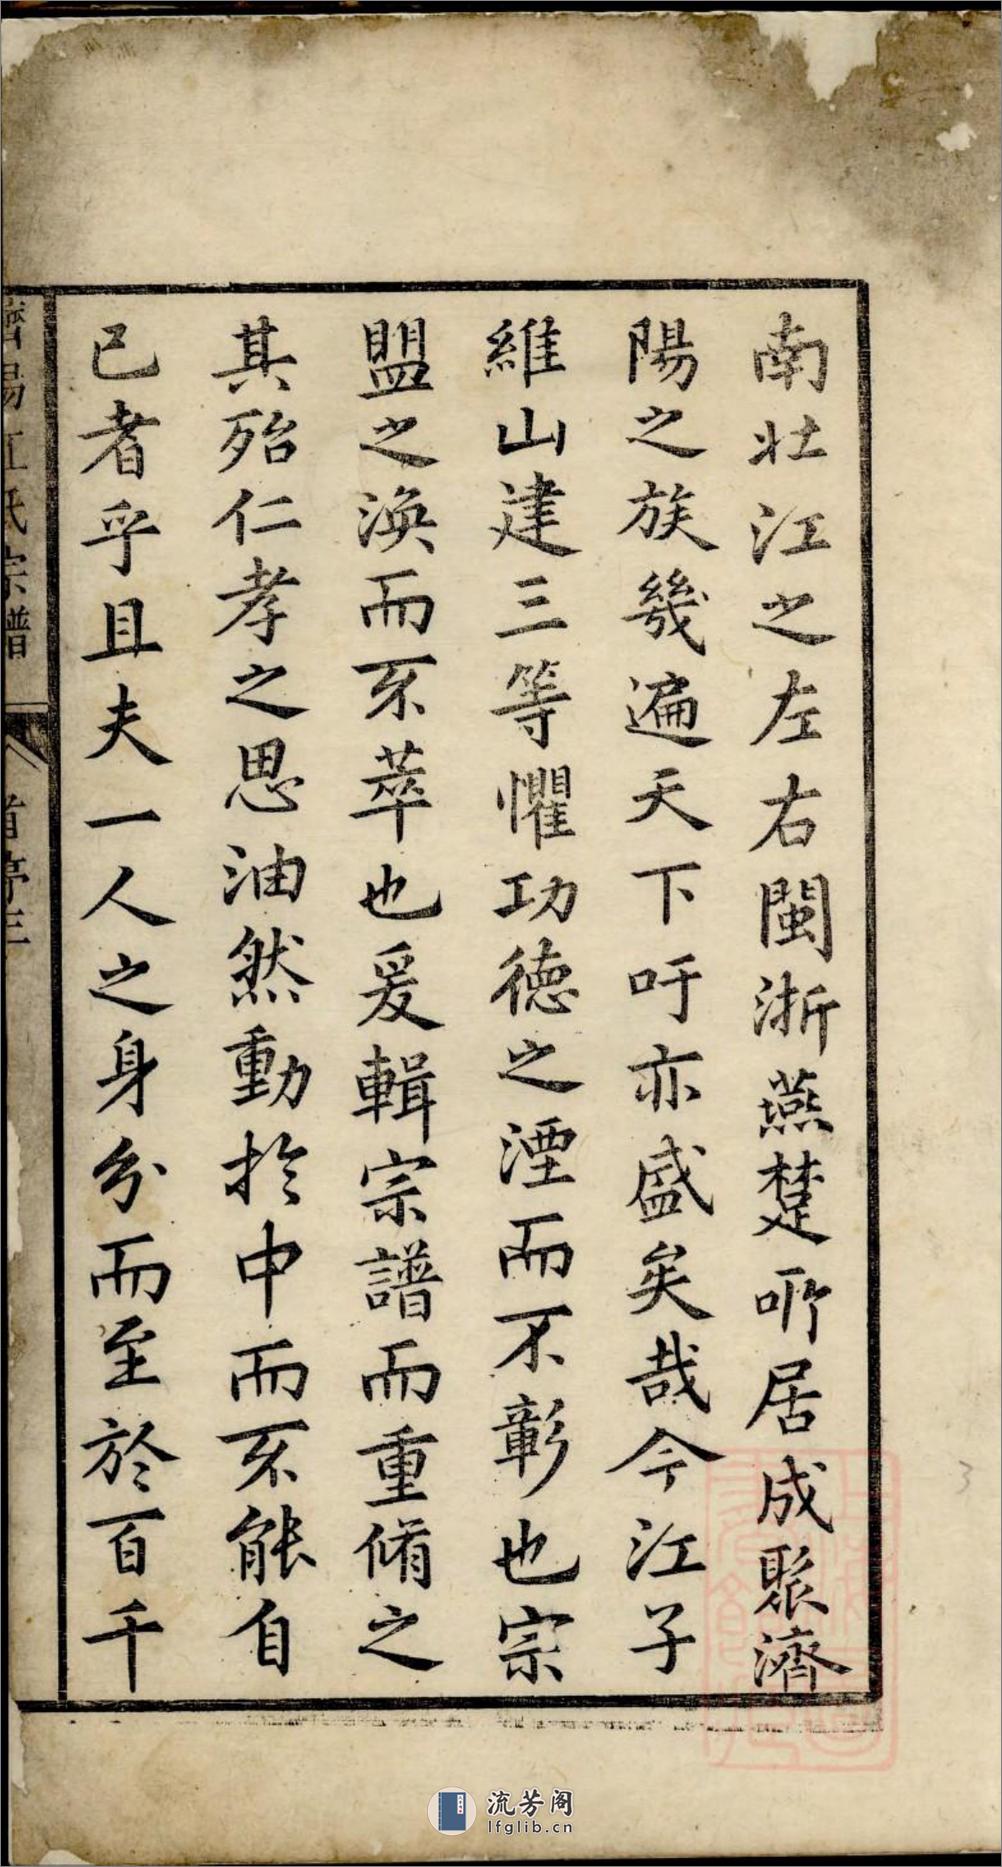 南壯江之左右閩浙燕楚所居成聚濟
陽之族幾遍天下吁亦盛矣哉今江子
維山建三等懼功德之湮而不彰也宗
盟之渙而不萃也爰輯宗譜而重脩之
其殆仁孝之思油然動於中而不能自
已者乎且夫一人之身分而至於百千
濟陽江氏宗譜
首序三
3
流芳阁
lfglib.cn